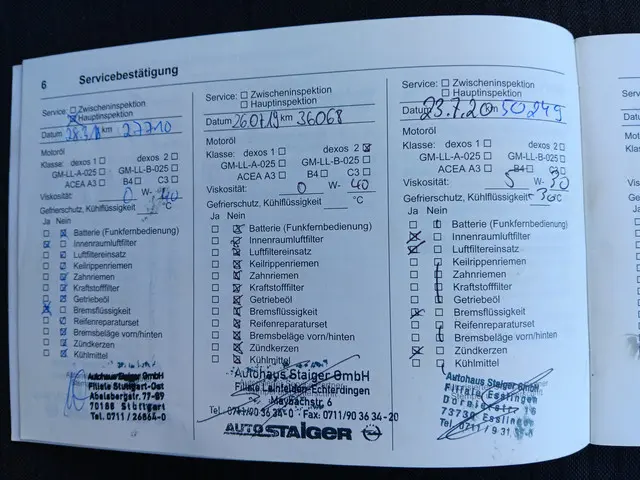 6 Servicebestätigung
Service: Zwischeninspektion
Hauptinspektion
Datum km 27710
Motoröl
Klasse: dexos 1 dexos 2
GM-LL-A-025 GM-LL-B-025
ACEA A3 B4 C3
Viskosität: 0 W- 40
Gefrierschutz, Kühlflüssigkeit °C
Ja Nein
Batterie (Funkfernbedienung)
Innenraumluftfilter
Luftfiltereinsatz
Keilrippenriemen
Zahnriemen
Kraftstofffilter
Getriebeöl
Bremsflüssigkeit
Reifenreparaturset
Bremsbeläge vorn/hinten
Zündkerzen
Kühlmittel
Autohaus Staiger GmbH
Filiale Stuttgart-Ost
70188 Stuttgart
Tel. 0711 / 26864-0
Service: Zwischeninspektion
Hauptinspektion
Datum 26.07.19 km 36068
Motoröl
Klasse: dexos 1 dexos 2
GM-LL-A-025 GM-LL-B-025
ACEA A3 B4 C3
Viskosität: 0 W- 40
Gefrierschutz, Kühlflüssigkeit °C
Ja Nein
Batterie (Funkfernbedienung)
Innenraumluftfilter
Luftfiltereinsatz
Keilrippenriemen
Zahnriemen
Kraftstofffilter
Getriebeöl
Bremsflüssigkeit
Reifenreparaturset
Bremsbeläge vorn/hinten
Zündkerzen
Kühlmittel
Autohaus Staiger GmbH
Filiale Leinfelden-Echterdingen
Maybachstr. 6
Tel. 0711/90 36 34-0 · Fax: 0711/90 36 34-20
AUTO STAIGER
Service: Zwischeninspektion
Hauptinspektion
Datum 23.7.20 km 50249
Motoröl
Klasse: dexos 1 dexos 2
GM-LL-A-025 GM-LL-B-025
ACEA A3 B4 C3
Viskosität: 5 W- 30
Gefrierschutz, Kühlflüssigkeit °C
Ja Nein
Batterie (Funkfernbedienung)
Innenraumluftfilter
Luftfiltereinsatz
Keilrippenriemen
Zahnriemen
Kraftstofffilter
Getriebeöl
Bremsflüssigkeit
Reifenreparaturset
Bremsbeläge vorn/hinten
Zündkerzen
Kühlmittel
Autohaus Staiger GmbH
Filiale Esslingen
73730 Esslingen
Tel. 0711 / 9 31